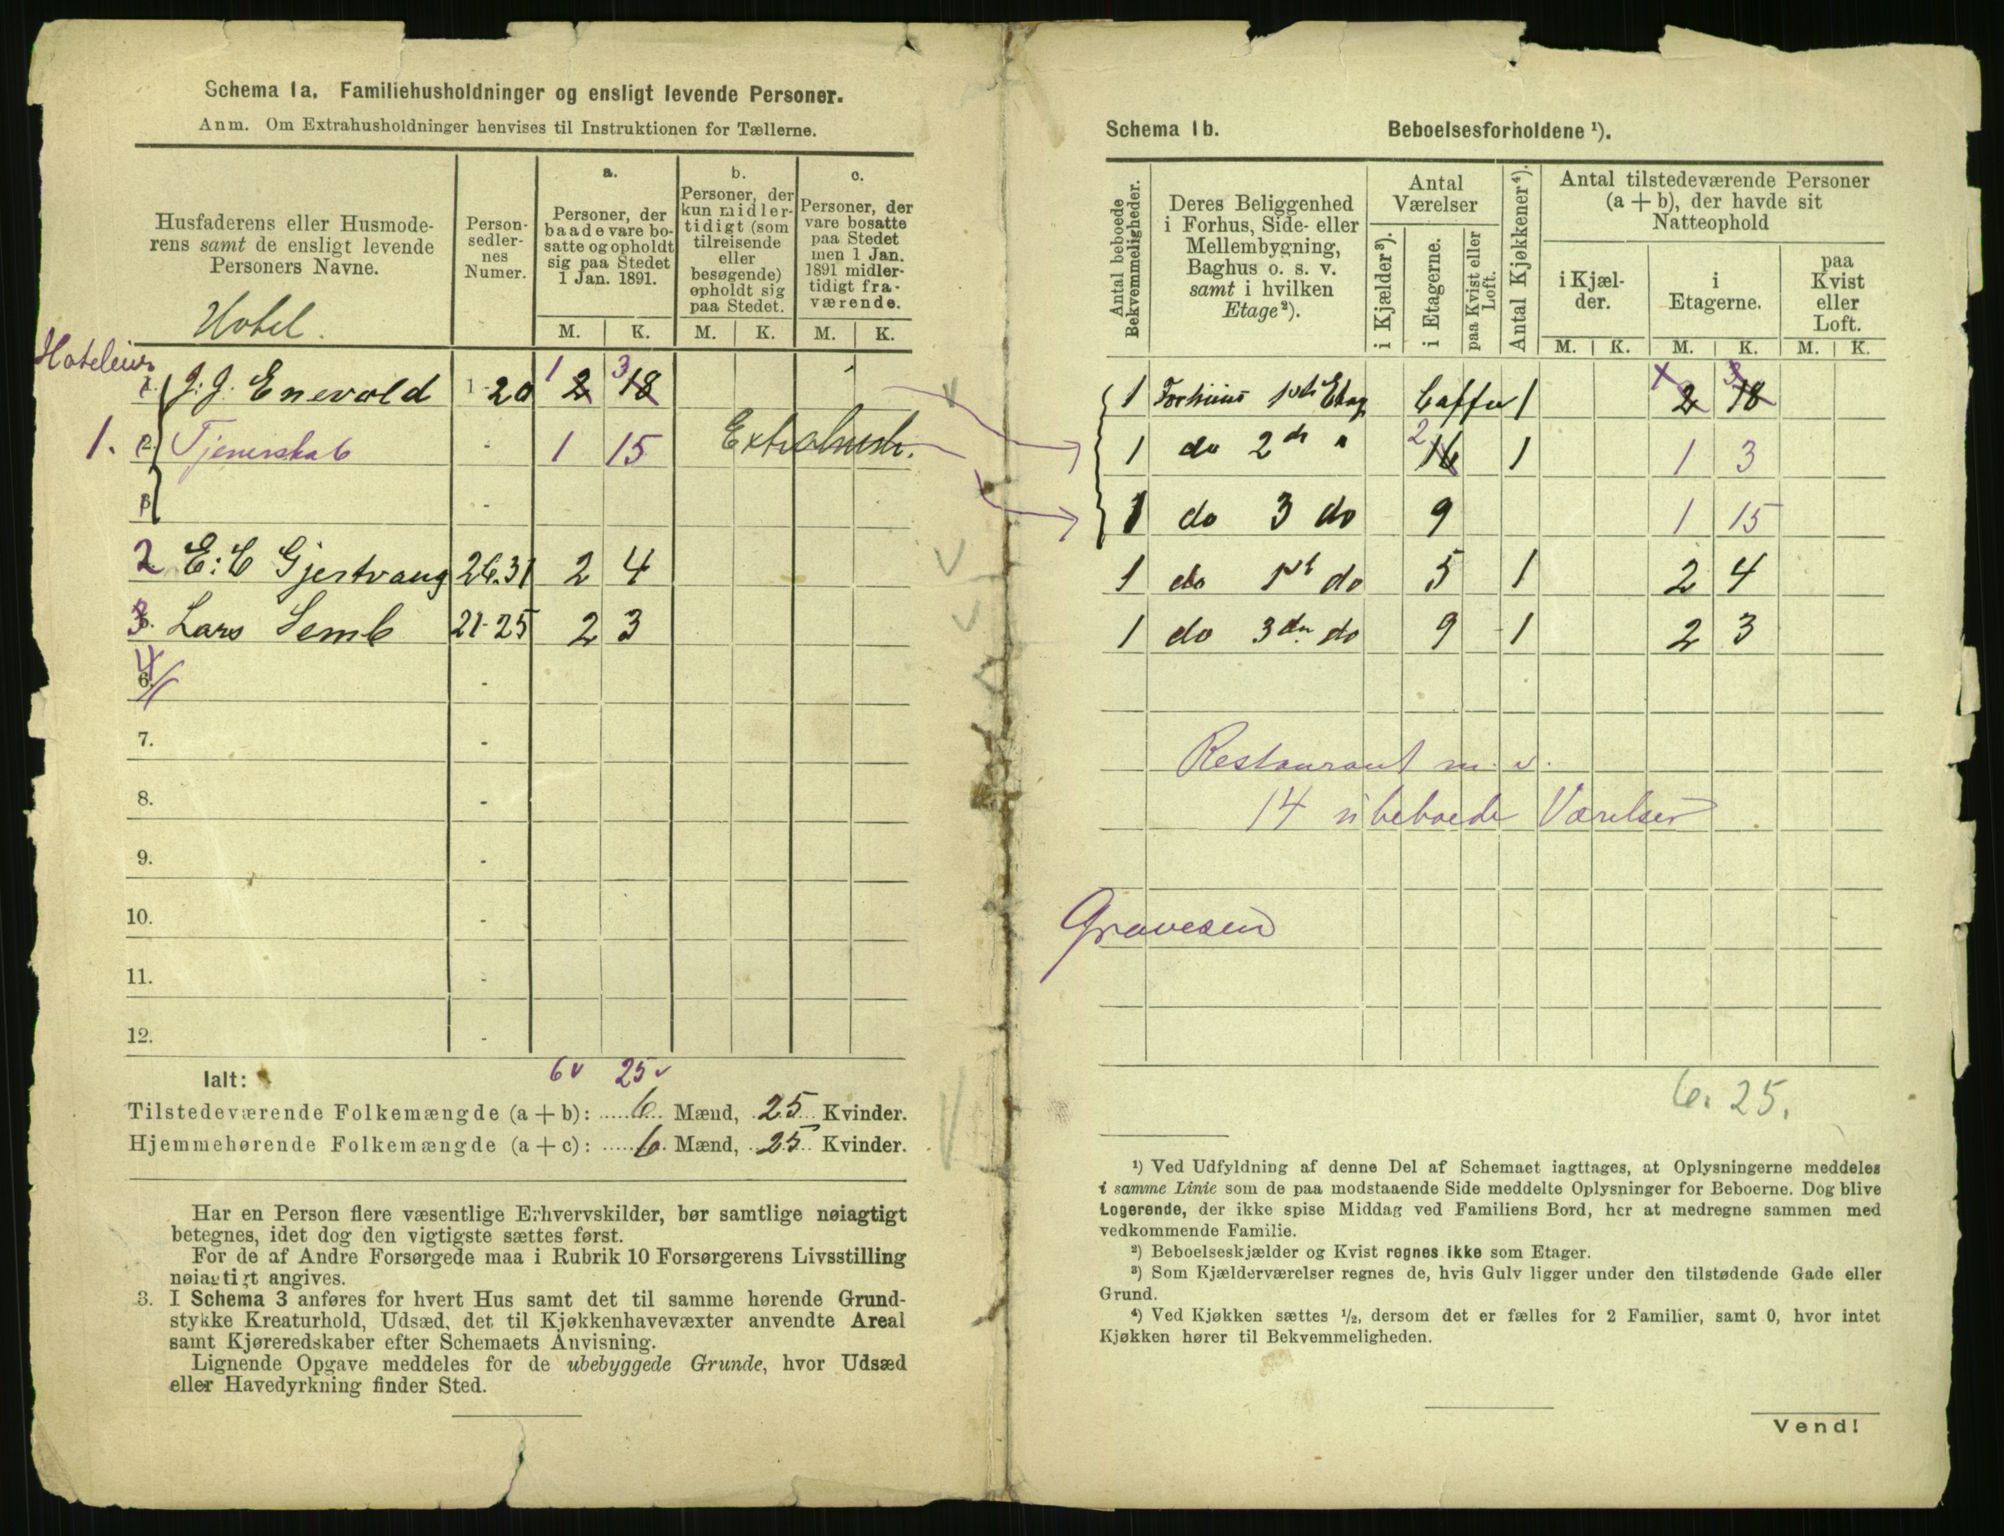 Schema 1a. Familiehusholdninger og ensligt levende Personer.
Anm. Om Extrahusholdninger henvises til Instruktionen for Tællerne.
Husfaderens eller Husmoderens samt de ensligt levende Personers Navne.
Hotel.
Person-sedlernes Numer.
a.
Personer, der baade vare bosatte og opholdt sig paa Stedet 1 Jan. 1891.
b.
Personer, der kun midlertidigt (som tilreisende eller besøgende) opholdt sig paa Stedet.
c.
Personer, der vare bosatte paa Stedet men 1 Jan. 1891 midlertidigt fraværende.
M. K. M. K. M. K.
Hoteleier
1. J. J. Enevold 1-20 2 18 1 3
1. 2. Tjenerskab - 1 15 Extrahush.
3 -
2 E: C Gjestvang 26.31 2 4
3. Lars Semb 21-25 2 3
4 6. -
7. -
8. -
9. -
10. -
11. -
12. -
6 v 25 v
Ialt:
Tilstedeværende Folkemængde (a + b): 6 Mænd, 25 Kvinder.
Hjemmehørende Folkemængde (a + c): 6 Mænd, 25 Kvinder.
Har en Person flere væsentlige Erhvervskilder, bør samtlige nøiagtigt
betegnes, idet dog den vigtigste sættes først.
For de af Andre Forsørgede maa i Rubrik 10 Forsørgerens Livsstilling
nøiagtigt angives.
3. I Schema 3 anføres for hvert Hus samt det til samme hørende Grund-
stykke Kreaturhold, Udsæd, det til Kjøkkenhavevæxter anvendte Areal
samt Kjøreredskaber efter Schemaets Anvisning.
Lignende Opgave meddeles for de ubebyggede Grunde, hvor Udsæd
eller Havedyrkning finder Sted.
Schema 1b. Beboelsesforholdene ¹).
Antal beboede Bekvemmeligheder.
Deres Beliggenhed i Forhus, Side- eller Mellembygning, Baghus o. s. v. samt i hvilken Etage ²).
Antal Værelser
i Kjælder ³).
i Etagerne.
paa Kvist eller Loft.
Antal Kjøkkener ⁴).
Antal tilstedeværende Personer (a + b), der havde sit Natteophold
i Kjælder.
i Etagerne.
paa Kvist eller Loft.
M. K. M. K. M. K.
1 Forhuus 1ste Etag Caffee 1 2 18
1 do 2de " 16 2 1 1 3
1 do 3 do 9 1 15
1 do 1ste do 5 1 2 4
1 do 3de do 9 1 2 3
Restaurant m. v.
14 ubeboede Værelser
Gravesen
6. 25.
¹) Ved Udfyldning af denne Del af Schemaet iagttages, at Oplysningerne meddeles
i samme Linie som de paa modstaaende Side meddelte Oplysninger for Beboerne. Dog blive
Logerende, der ikke spise Middag ved Familiens Bord, her at medregne sammen med
vedkommende Familie.
²) Beboelseskjælder og Kvist regnes ikke som Etager.
³) Som Kjælderværelser regnes de, hvis Gulv ligger under den tilstødende Gade eller
Grund.
⁴) Ved Kjøkken sættes ½, dersom det er fælles for 2 Familier, samt 0, hvor intet
Kjøkken hører til Bekvemmeligheden.
Vend!